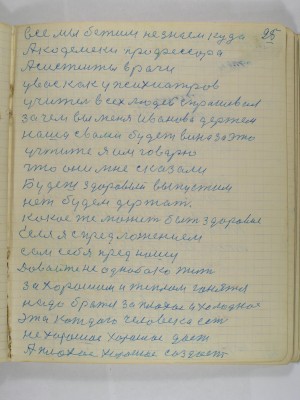 25
все мы бежим незнаем куда
Академики професора
Асистинты врачи
увас как у психиатров
учится всех людей спрашивал
зачем вы меня Иванова держем
наша свами будет вина за это
учтите я им говарю
что они мне сказали
Будеш здоровый выпустим
нет будем держат.
какое же может быт здоровье
если я с предложением
сам себя пред
Давайте не одноба
за хорошим и теплом гонятся
надо братся за плохое и холодное
эти каждого человека
не хорошае хорошае дает
А плохае хорошае создает